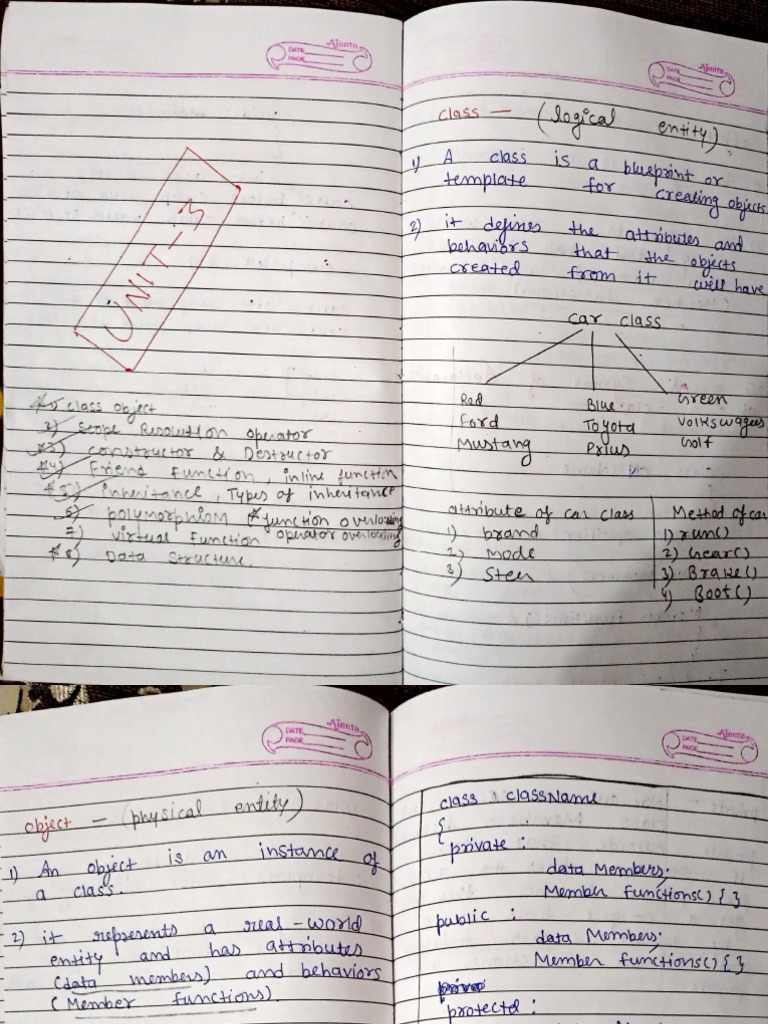 Ajanta
DATE
PAGE
UNIT-3
*1) class object
2) Scope Resolution operator
*3) constructor & Destructor
*4) Friend Function, inline function
*5) inheritance, Types of inheritance
6) polymorphism * function overloading
7) virtual function operator overloading
*8) Data Structure.
Ajanta
DATE
PAGE
class — (logical entity)
1) A class is a blueprint or
template for creating objects
2) it defines the attributes and
behaviors that the objects
created from it will have
Car class
Red Blue Green
Ford Toyota Volkswagen
Mustang Prius Golf
attribute of car class Method of car
1) brand 1) run()
2) Mode 2) Gear()
3) Steer 3) Brake()
4) Boot()
Ajanta
DATE
PAGE
object — (physical entity)
1) An object is an instance of
a class.
2) it represents a real-world
entity and has attributes
(data members) and behaviors
(Member functions).
Ajanta
DATE
PAGE
class className
{
private :
data Members;
Member functions() { }
public :
data Members;
Member functions() { }
protectd :